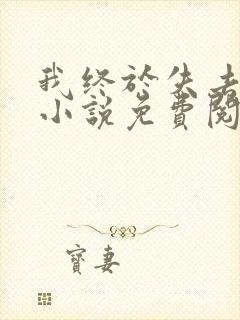 我终於失去
小說免費閱
寶妻